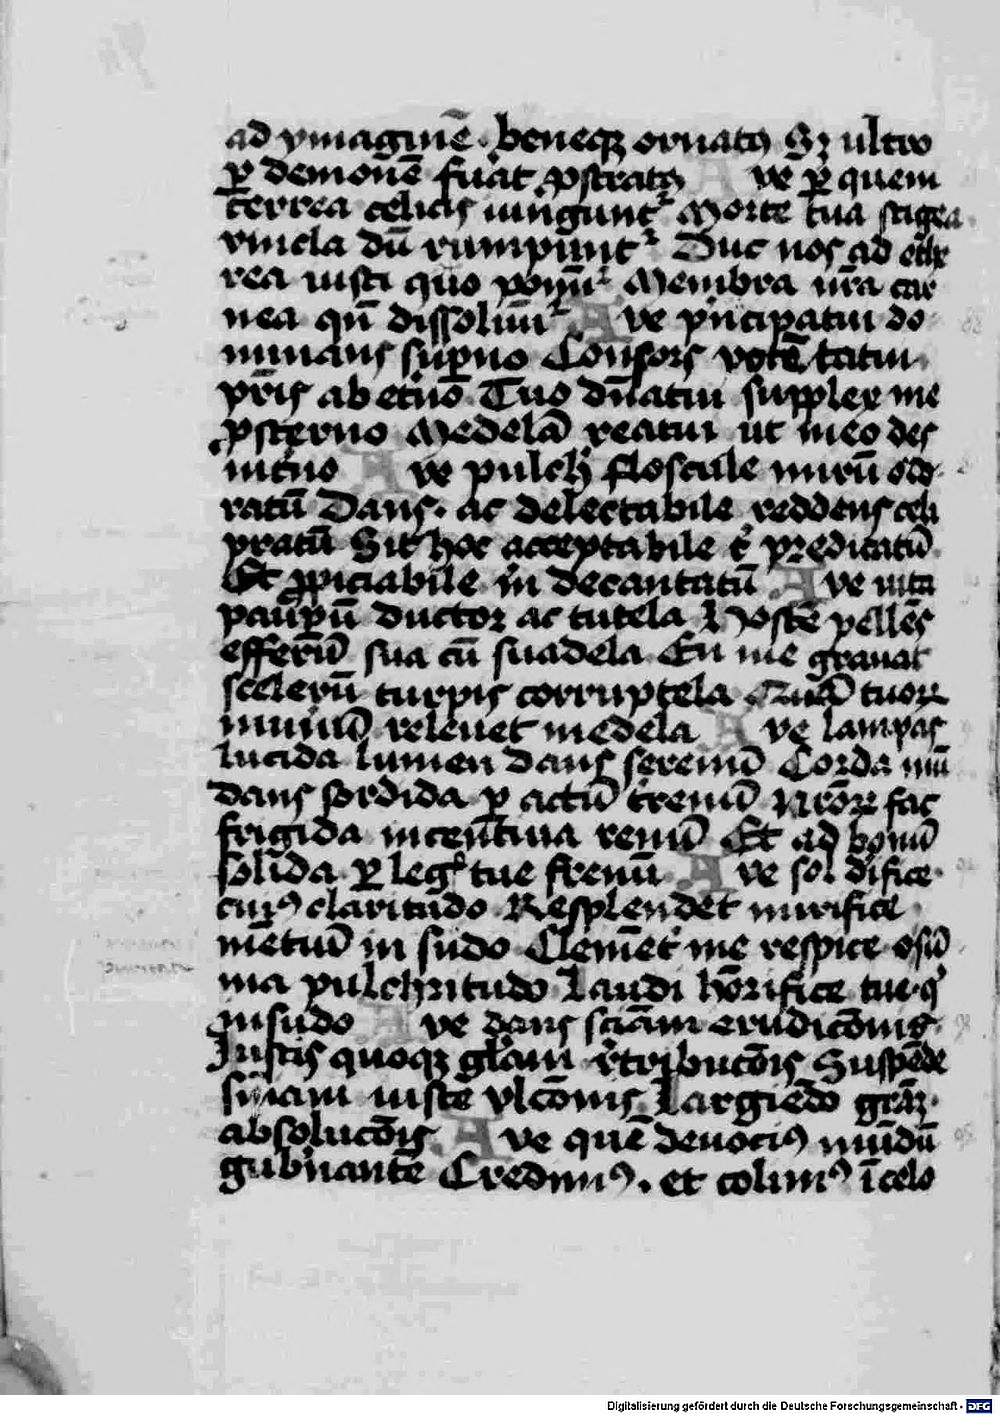 ad ymaginē. beneqꝫ ornatꝰ Sꝫ ultro
ꝑ demonē fuāt ꝓstratꝰ Ave ꝑ quem
terrea celicis iungunt᷑ Morte tua stigea
vincla dū rumpunt᷑ Duc nos ad ethe
rea iusti quo ponūt᷑ Membra nr̄a car
nea qn̄ dissolūnt᷑ Ave pⁱncipatui do
minans suꝑno Consors potētatui
pr̄is ab etⁱno Tuo dn̄atui supplex me
ꝓsterno Medelā reatui ut meo des
Ave pulchͥ floscule mirū odo
ratū Dans. ac delectabile reddens celi
pratū Sit hoc acceptabile tͥ predicatū
Et ꝓpiciabile mͥ decantatū Ave uita
pauꝑū ductor ac tutela Hostē pellēs
efferū sua cū suadela En me grauat
scelerū turpis corruptela tuoꝝ
munͥū releuet medela Ave lampas
lucida lumen dans serenū Corda mū
dans sordida ꝑ actū trenū Nr̄oꝝ fac
frigida incentiua renū Et ad bonū
solida ꝑ legͥ tue frenū Ave sol difice
cuiꝰ claritudo Resplendet mirifice
mētiū in sudo Clemēt᷑ me respice osū
ma pulchritudo Laudi hōrifice tue qͥ
insudo Ave dans sciām erudicōnis
Iustis quoqꝫ glͥam rͥtribucōis Suspēde
sn̄iam iuste vlcōnis Largiēdo grāꝫ
absolucōis Ave quē deuociꝰ mūdū
gub̾nantē Credimꝰ. et colimꝰ ī celo
Digitalisierung gefördert durch die Deutsche Forschungsgemeinschaft - DFG